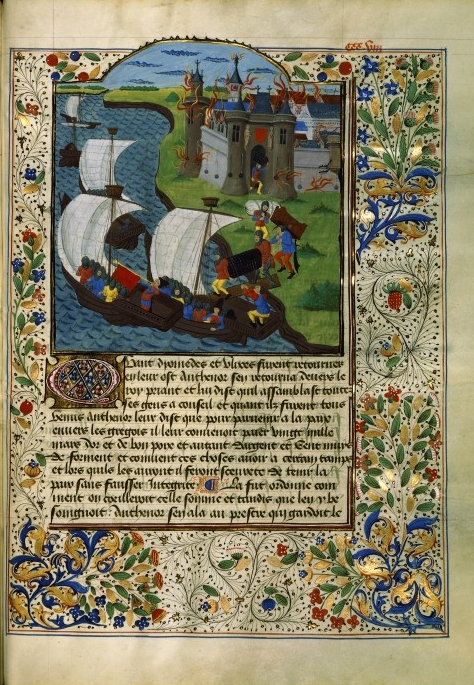 Quant dyomedes et ulixes furent retourner
en leur ost Anthenor sen retourna devers le
roy priant et lui dist quil assamblast toutes
ses gens a conseil et quant ilz furent tous
venus Anthenor leur dist que pour parvenir a la paix
envers les gregois il leur convenoit paier vingt mille
mars dor et de bon pois et autant dargent et Cent muys
de forment et convient ces choses avoir a certain temps
et lors quilz les auront ilz feront seurete de tenir la
paix sans fausser Integrite La fut ordonne com
ment on cueilleroit celle somme et tandis que len y be
soingnoit Anthenor sen ala au prestre qui gardoit le